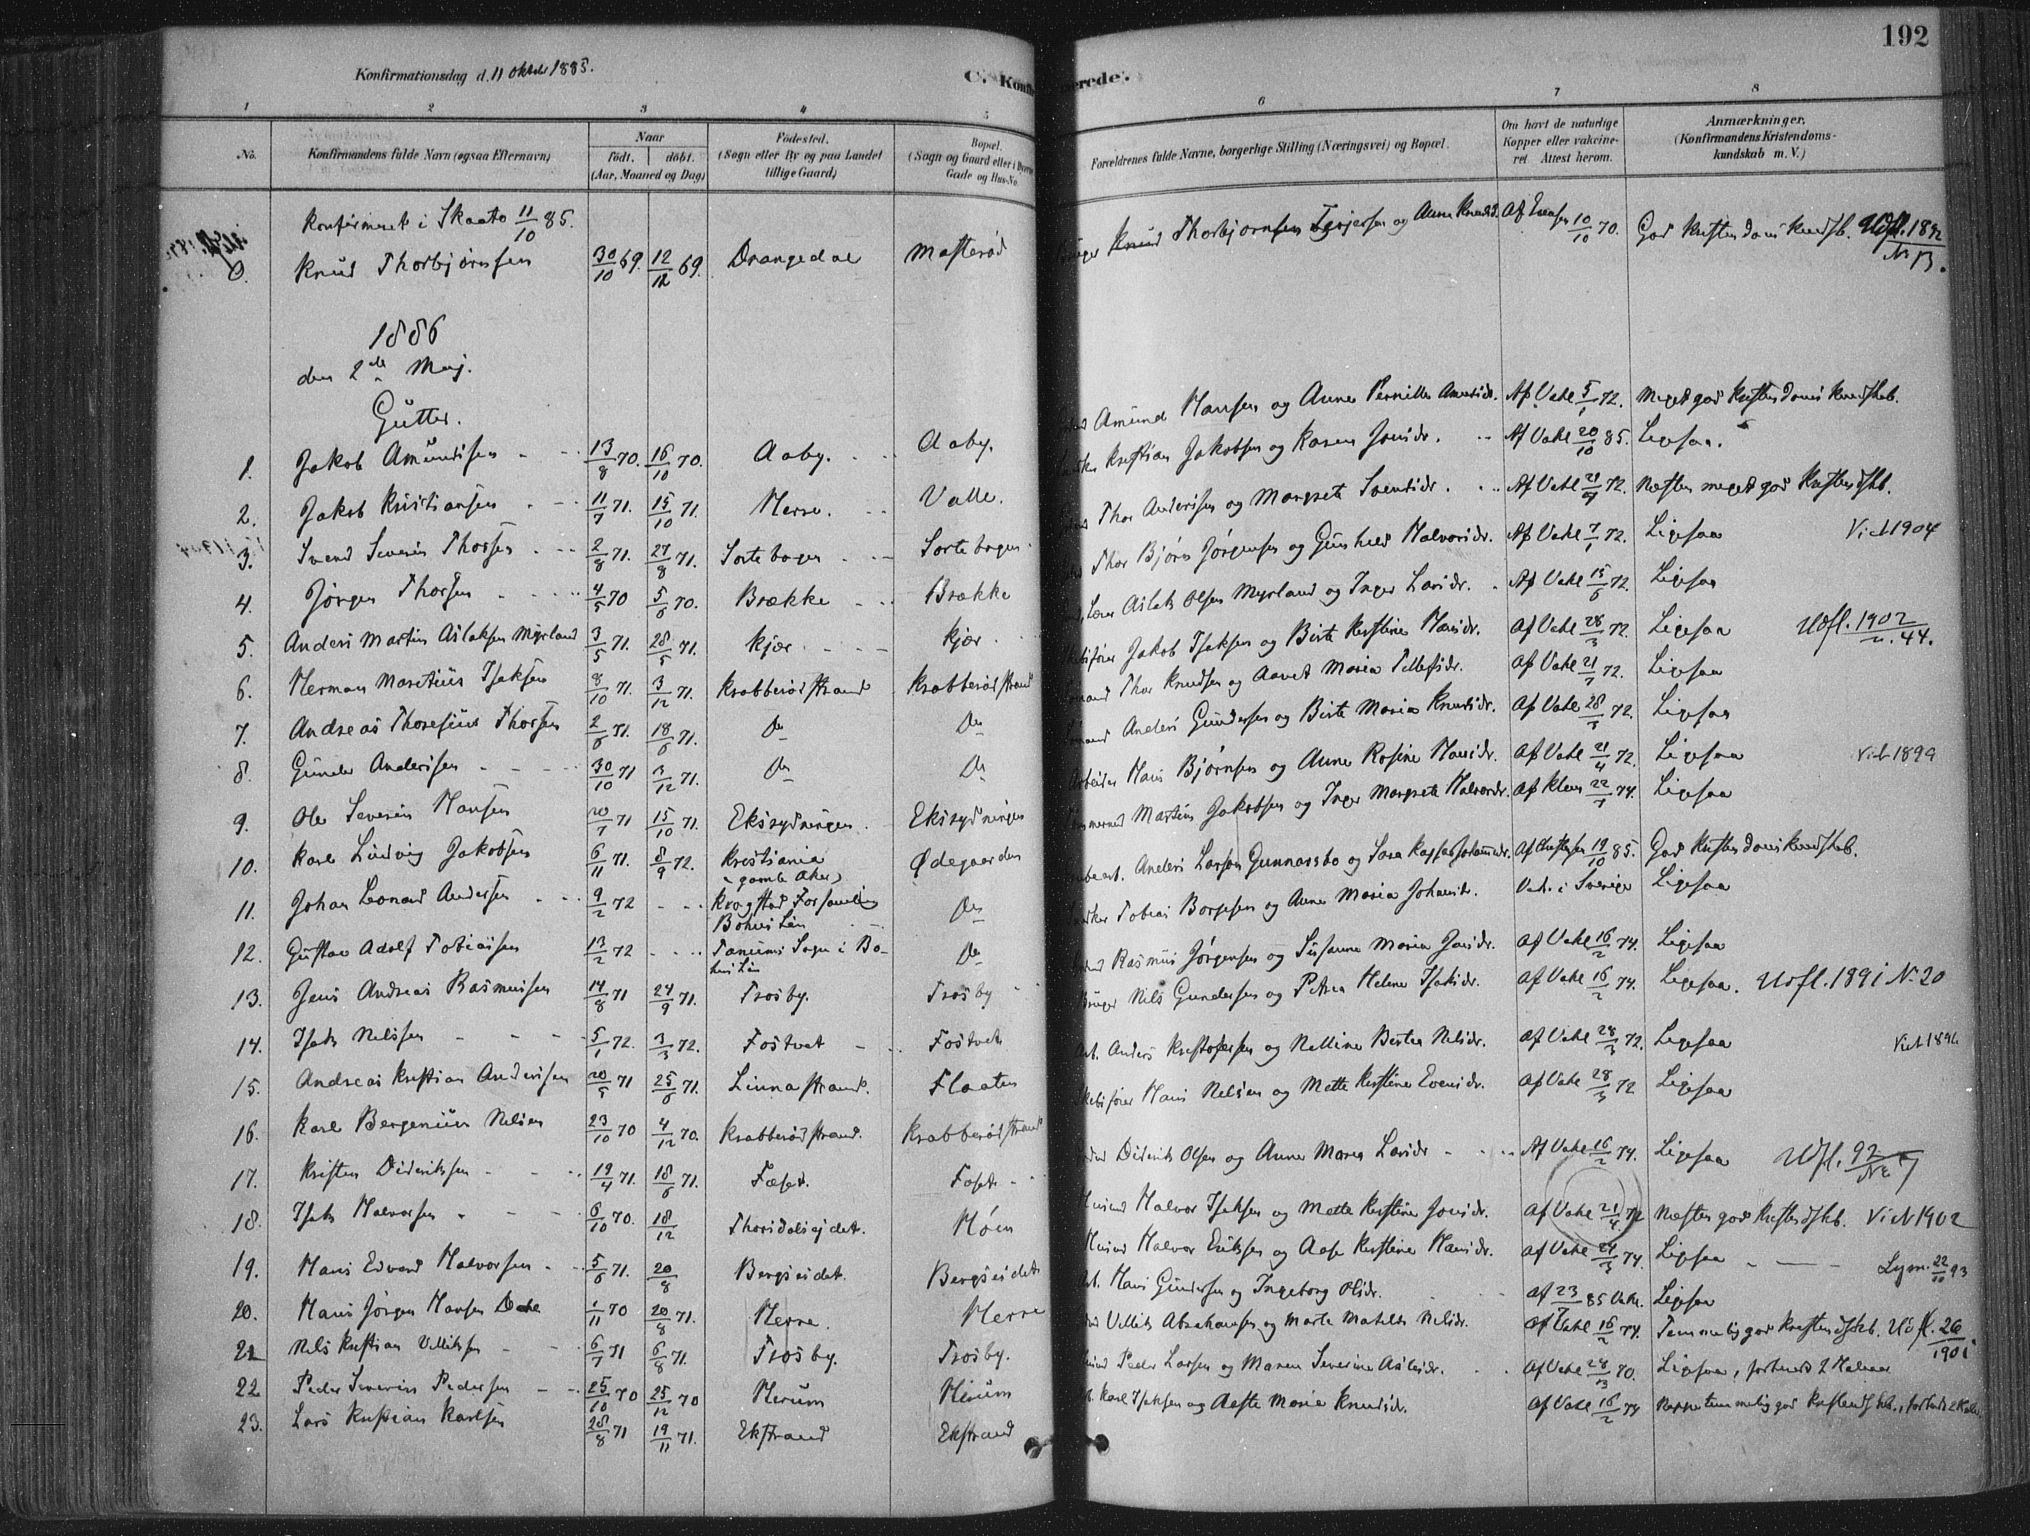 192
Konfirmationsdag d. 11 Oktober 1885.
C. Konfirmerede.
1 2 3 4 5 6 7 8
No. Konfirmandens fulde Navn (ogsaa Efternavn) Naar født. døbt. (Aar, Maaned og Dag) Fødested. (Sogn eller By og paa Landet tillige Gaard) Bopæl. (Sogn og Gaard eller i Byerne Gade og Hus-No. Forældrenes fulde Navne, borgerlige Stilling (Næringsvei) og Bopæl. Om havt de naturlige Kopper eller vakcineret Attest herom. Anmærkninger. (Konfirmandens Kristendomskundskab m. V.)
Konfirmeret i Skaato 11/10 85.
Knud Thorbjørnsen 30/10 69. 12/12 69. Drangedal Mofterød Knud Thorbjørnsen og Anne Knudsd. Af 10/10 70. God Kristendomskundsk. Udfl. 1892 No 13.
1886
den 2de Maj.
Gutter.
1. Jakob Amundsen 13/8 70. 16/10 70. Aaby. Aaby. Amund Hansen og Anne Pernille Amundsdr. Af Vahl 5/1 72. Meget god Kristendomskundskab.
2. Jakob Kristiansen 11/7 71. 15/10 71. Herre. Valle. Kristian Jakobsen og Karen Jonsdr. Af Vahl 20/10 85. Ligesaa.
3. Svend Severin Thorsen 2/8 71. 27/8 71. Sortebogen Sortebogen Thor Anderssen og Margrete Svendsdr. Af Vahl 21/9 72. Næsten meget god Kristendsk.
4. Jørgen Thorsen 4/5 70 5/6 70. Brække Brække Thor Bjørn Jørgensen og Gunhild Halvorsdr. Af Vahl 7/1 72. Ligesaa Vict 1904
5. Anders Martin Aslaksen Myrland 3/5 71. 28/5 71. Kjær Kjær Aslak Olsen Myrland og Inger Larsdr. Af Vahl 15/6 72. Ligesaa
6. Herman Maretius Isaksen 8/10 71. 3/12 71. Krabberødstrand Krabberødstrand Jakob Isaksen og Birte Kirstine Hansdr. Af Vahl 28/3 72. Ligesaa Udfl. 1902 n. 44.
7. Andreas Thorefius Thorsen 2/6 71. 18/6 71. Do Do Thor Knudsen og Aavet Maria Tellefsdr. Af Vahl 21/7 72. Ligesaa
8. Gunder Anderssen 30/10 71 3/12 71. Do Do Anders Gundersen og Birte Maria Knudsdr. Af Vahl 28/3 72. Ligesaa
9. Ole Severin Hansen 20/7 71 15/10 71. Eksrydningen. Eksrydningen Arbeider Hans Bjørnsen og Anne Rosine Hansdr. Af Vahl 21/4 72. Ligesaa Vict 1899
10. Karl Ludvig Jakobsen 6/11 71. 8/9 72. Kristiania (gamle Aker) Ødegaarden Martin Jakobsen og Inger Margrete Halvorsdr. Af Klem 22/7 74. Ligesaa
11. Johan Leonard Andersen 9/2 72 Krogstad Forsamling Bohus Län Do Anders Larson Gunnarsbo og Sara Af 19/10 85. God Kristendomskundskab.
12. Gustav Adolf Tobiassen 13/2 72 Tanums Sogn i Bohus Län Do Tobias Borgesen og Anne Maria Johansdr. Vak. i Sverige Ligesaa
13. Jens Andreas Rasmussen 14/8 71 24/9 71. Trosby. Trosby Rasmus Jørgensen og Susanne Maria Jonsdr. Af Vahl 16/2 74. Ligesaa
14. Isak Nilssen 5/1 72. 3/3 72. Fostvet Fostvet Bruger Nils Gundersen og Petrea Helene Isaksdr. Af Vahl 16/2 74. Ligesaa. Udfl. 1891 No 20
15. Andreas Kristian Anderssen 20/5 71 25/6 71. Linnastrand. Flaaten Arb. Anders Kristofersen og Nelline Bertea Nilsdr. Af Vahl 28/3 72. Ligesaa
16. Karl Bergenius Nilsen 23/10 70 4/12 70. Krabberødstrand. Krabberødstrand Hans Nilsen og Mette Kirstine Evensdr. Af Vahl 28/3 72 Ligesaa
17. Kristen Dideriksen 19/4 71. 18/6 71. Foset. Foset Diderik Olsen og Anne Maria Larsdr Af Vahl 16/2 74. Ligesaa Udfl. 92 No 7
18. Isak Halvorsen 6/10 70. 18/12 Thorsdalseidet. Moen Husmd Halvor Isaksen og Mette Kirstine Jonsdr. Af Vahl 21/4 72 Næsten god Kristendsk. Vict 1902
19. Hans Edvard Halvorsen 5/6 71. 20/8 Bergseidet. Bergseidet Husmd Halvor Eriksen og Aase Kirstine Hansdr. Af Vahl 24/3 74. Ligesaa
20. Hans Jørgen Hansen Dahl 1/11 70 20/8 71. Herre. Herre Arb. Hans Gundersen og Ingeborg Olsdr. Af 23/7 85 Vahl. Ligesaa
21 Nils Kristian Villiksen 6/7 71 6/8 71. Trosby. Trosby. Villik Abrahamsen og Marte Matilde Nilsdr. Af Vahl 16/2 74. Temmelig god Kristendsk. Udfl. 26/1901
22 Peder Severin Pedersen 25/10 70 25/12 70 Herum Herum Peder Larsen og Maren Severine Aslaksdr. Af Vahl 28/3 70. Ligesaa, forberedt 2 Halvaar
23. Lars Kristian Karlsen 28/8 71 19/11 71. Ekstrand Ekstrand Karl Isaksen og Aaste Maria Knudsdr. Af Vahl 16/2 74 Neppe temmelig god Kristendsk.